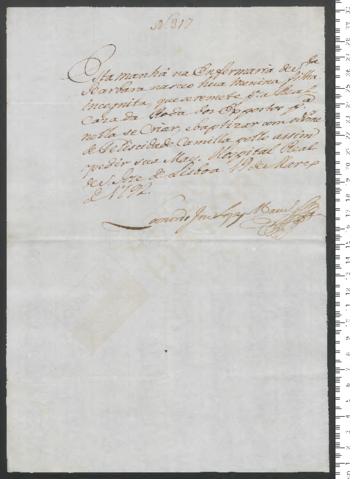 N. 317
Esta manhã na Enfermaria de Sta
Barbara nasceo hũa menina filha
Incognita, que se remete p.a a Real
Caza da Roda dos Expostos p.a
nella se Criar, e baptizar com o nome
de Felicidade Camilla pello assim
pedir sua May. Hospital Real
de S. Joze de Lisboa 19 de Março
de 1792.